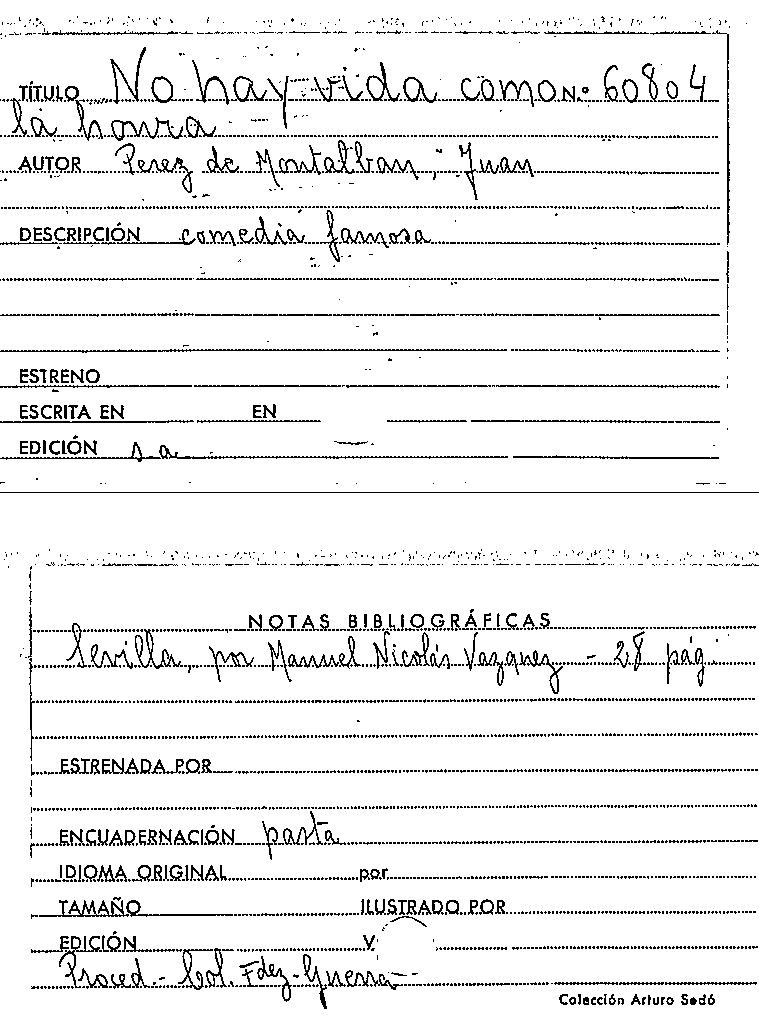 TÍTULO No hay vida como N.º 60804
la honra -
AUTOR Perez de Montalban, Juan
DESCRIPCIÓN comedia famosa
ESTRENO
ESCRITA EN EN
EDICIÓN s.a.
NOTAS BIBLIOGRÁFICAS
Sevilla, por Manuel Nicolás Vazquez - 28 pág.
ESTRENADA POR
ENCUADERNACIÓN pasta
IDIOMA ORIGINAL por
TAMAÑO ILUSTRADO POR
EDICIÓN V
Proced.- Col. Fdez-Guerra-
Colección Arturo Sedó